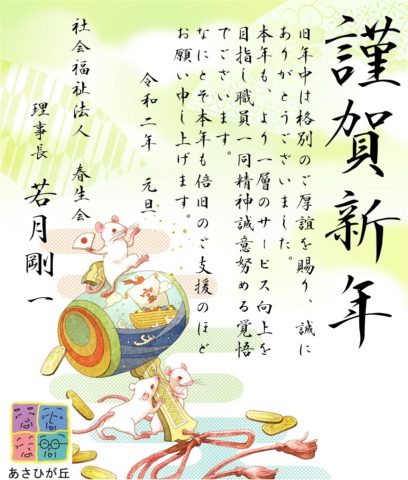 謹賀新年
旧年中は格別のご厚誼を賜り、誠に
ありがとうございました。
本年も、より一層のサービス向上を
目指し職員一同精神誠意努める覚悟
でございます。
なにとぞ本年も倍旧のご支援のほど
お願い申し上げます。
令和二年 元旦
社会福祉法人 春生会
理事長 若月剛一
あさひが丘